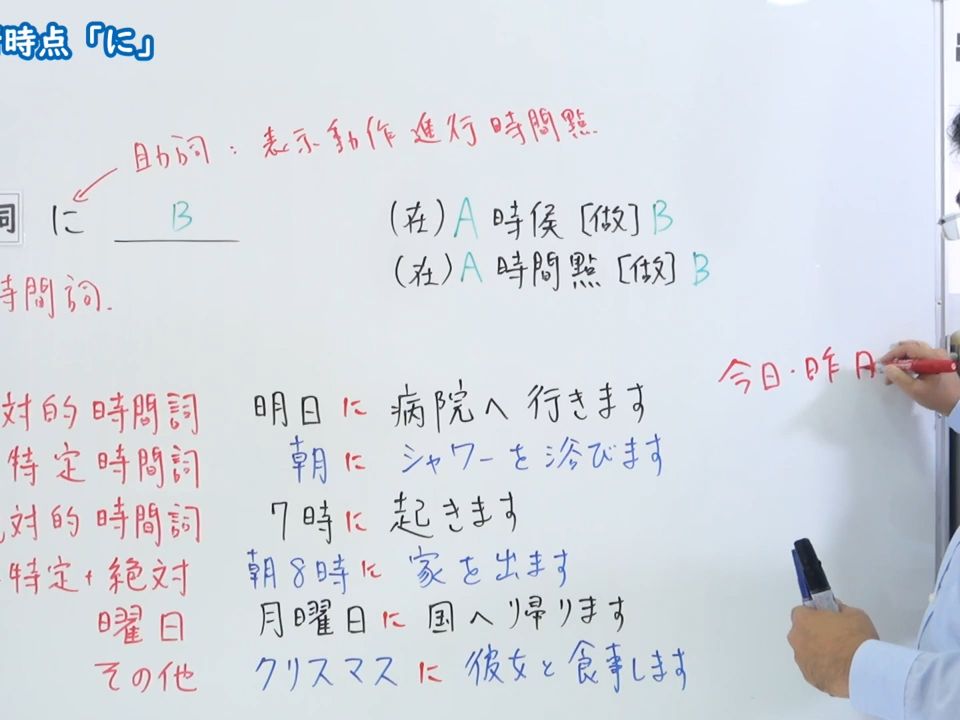 時点「に」
助詞：表示動作進行時間點
詞 に B
(在) A 時侯 [做] B
(在) A 時間點 [做] B
時間詞.
今日・昨日
対的時間詞 明日に 病院へ行きます
特定時間詞 朝に シャワーを浴びます
対的時間詞 7時に 起きます
特定+絶対 朝8時に 家を出ます
曜日 月曜日に 国へ帰ります
その他 クリスマスに 彼女と食事します